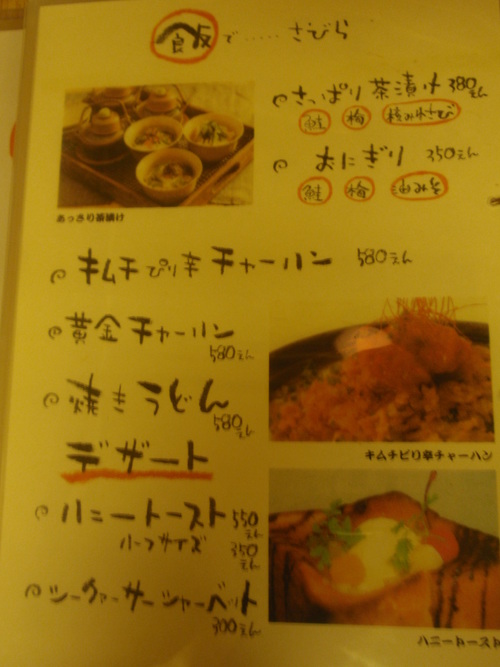 飯で・・・・・さびら
さっぱり茶漬け 380えん
鮭 梅 刻みわさび
おにぎり 350えん
鮭 梅 油みそ
あっさり茶漬け
キムチぴり辛チャーハン 580えん
黄金チャーハン
580えん
焼きうどん
580えん
キムチピリ辛チャーハン
デザート
ハニートースト 550えん
ハーフサイズ 350えん
シークァーサーシャーベット
300えん
ハニートースト